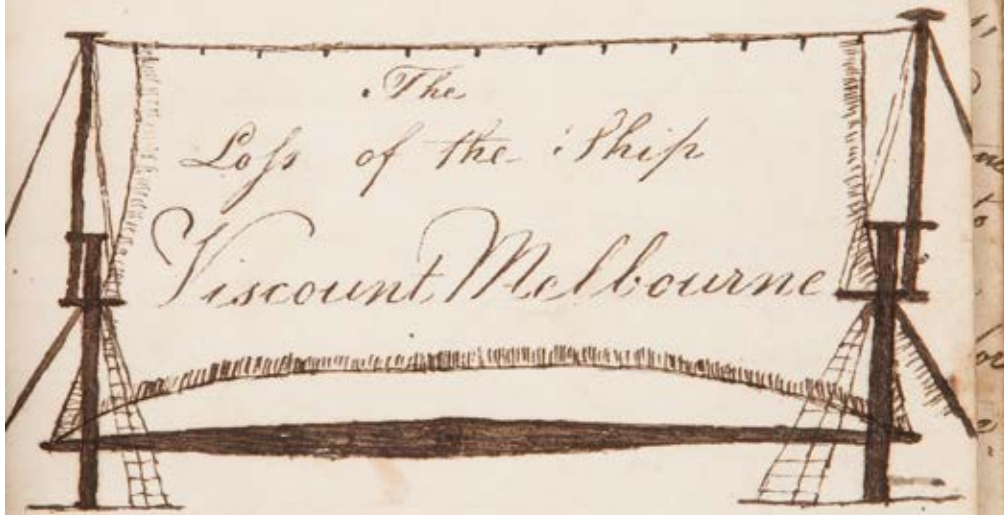 The
Loſs of the Ship
Viscount Melbourne